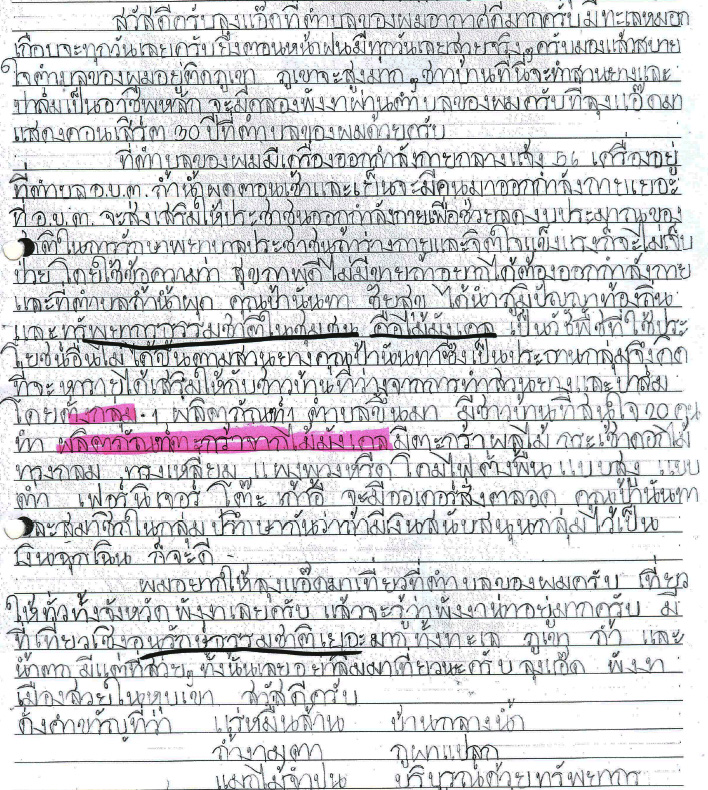 สวัสดีครับลุงแอ๊ดที่ตำบลของผมอากาศดีมากครับมีทะเลหมอก
เกือบจะทุกวันเลยครับยิ่งตอนหน้าฝนมีทุกวันเลยสวยจริงๆครับมองแล้วสบาย
ใจตำบลของผมอยู่ติดภูเขา ภูเขาจะสูงมากๆชาวบ้านที่นี่จะทำสวนยางและ
ปาล์มเป็นอาชีพหลัก จะมีคลองพังงาผ่านตำบลของผมครับที่ลุงแอ๊ดมา
แสดงคอนเสิร์ต 30 ปีที่ตำบลของผมด้วยครับ
ที่ตำบลของผมมีเครื่องออกกำลังกายกลางแจ้ง 56 เครื่องอยู่
ที่ตำบล อ.บ.ต. ถ้ำน้ำผุดตอนเช้าและเย็นจะมีคนมาออกกำลังกายเยอะ
ที่ อ.บ.ต. จะส่งเสริมให้ประชาชนออกกำลังกายเพื่อช่วยลดงบประมาณของ
ชาติในการรักษาพยาบาลประชาชนถ้าร่างกายและจิตใจแข็งแรงก็จะไม่เจ็บ
ป่วย โดยใช้ข้อความว่า สุขภาพดีไม่มีขายถ้าอยากได้ต้องออกกำลังกาย
และที่ตำบลถ้ำน้ำผุด คุณป้านันทา ชัยสุข ได้นำภูมิปัญญาท้องถิ่น
และทรัพยากรธรรมชาติในชุมชน คือไม้มังเคล เป็นวัชพืชที่ใช้ประ
โยชน์อื่นไม่ได้ขึ้นตามสวนยางคุณป้านันทาซึ่งเป็นประธานกลุ่มจึงคิด
ที่จะหารายได้เสริมให้กับชาวบ้านที่ว่างจากการทำสวนยางและปาล์ม
โดยตั้งกลุ่ม 1 ผลิตภัณฑ์1 ตำบลขึ้นมา มีชาวบ้านที่สนใจ 20 คน
ทำ ผลิตภัณฑ์ตะกร้าจากไม้มังเคลมีตะกร้าผลไม้ กระเช้าดอกไม้
ทรงกลม ทรงเหลี่ยม แผงพวงหรีด โคมไฟตั้งพื้น แบบสูง แบบ
ต่ำ เฟอร์นิเจอร์ โต๊ะ เก้าอี้ จะมีออเดอร์สั่งตลอด คุณป้านันทา
และสมาชิกในกลุ่มปรึกษากันว่าถ้ามีเงินสนับสนุนกลุ่มไว้เป็น
เงินฉุกเฉิน ก็จะดี
ผมอยากให้ลุงแอ๊ดมาเที่ยวที่ตำบลของผมครับ เที่ยว
ให้ทั่วทั้งจังหวัดพังงาเลยครับ แล้วจะรู้ว่าพังงาน่าอยู่มากครับ มี
ที่เที่ยวเชิงอนุรักษ์ธรรมชาติเยอะมาก ทั้งทะเล ภูเขา ถ้ำ และ
น้ำตก มีแต่ที่สวยๆทั้งนั้นเลยอย่าลืมมาเที่ยวนะครับ ลุงแอ๊ด พังงา
เมืองสวยในหุบเขา สวัสดีครับ
ดั่งคำขวัญที่ว่า แร่หมื่นล้าน บ้านกลางน้ำ
ถ้ำงามตา ภูผาแปลก
แมกไม้จำปูน บริบูรณ์ด้วยทรัพยากร